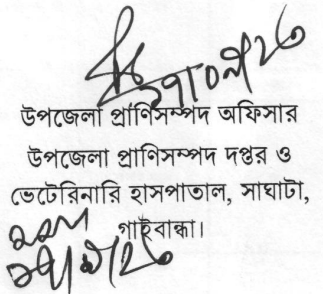 উপজেলা প্রাণিসম্পদ অফিসার
উপজেলা প্রাণিসম্পদ দপ্তর ও
ভেটেরিনারি হাসপাতাল, সাঘাটা,
গাইবান্ধা।